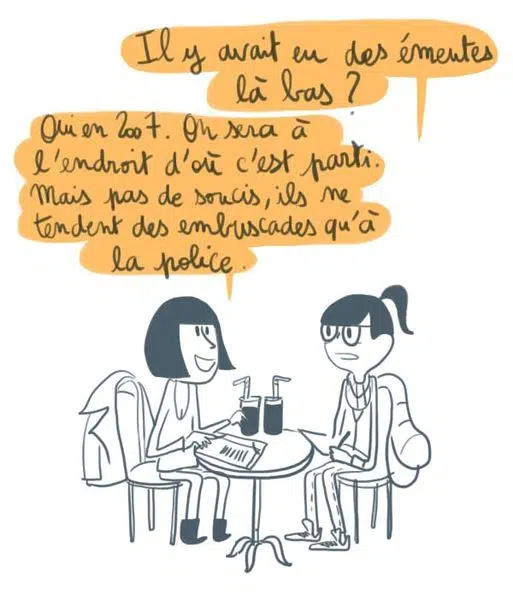 Il y avait eu des émeutes
là bas ?
Oui en 2007. On sera à
l'endroit d'où c'est parti.
Mais pas de soucis, ils ne
tendent des embuscades qu'à
la police.